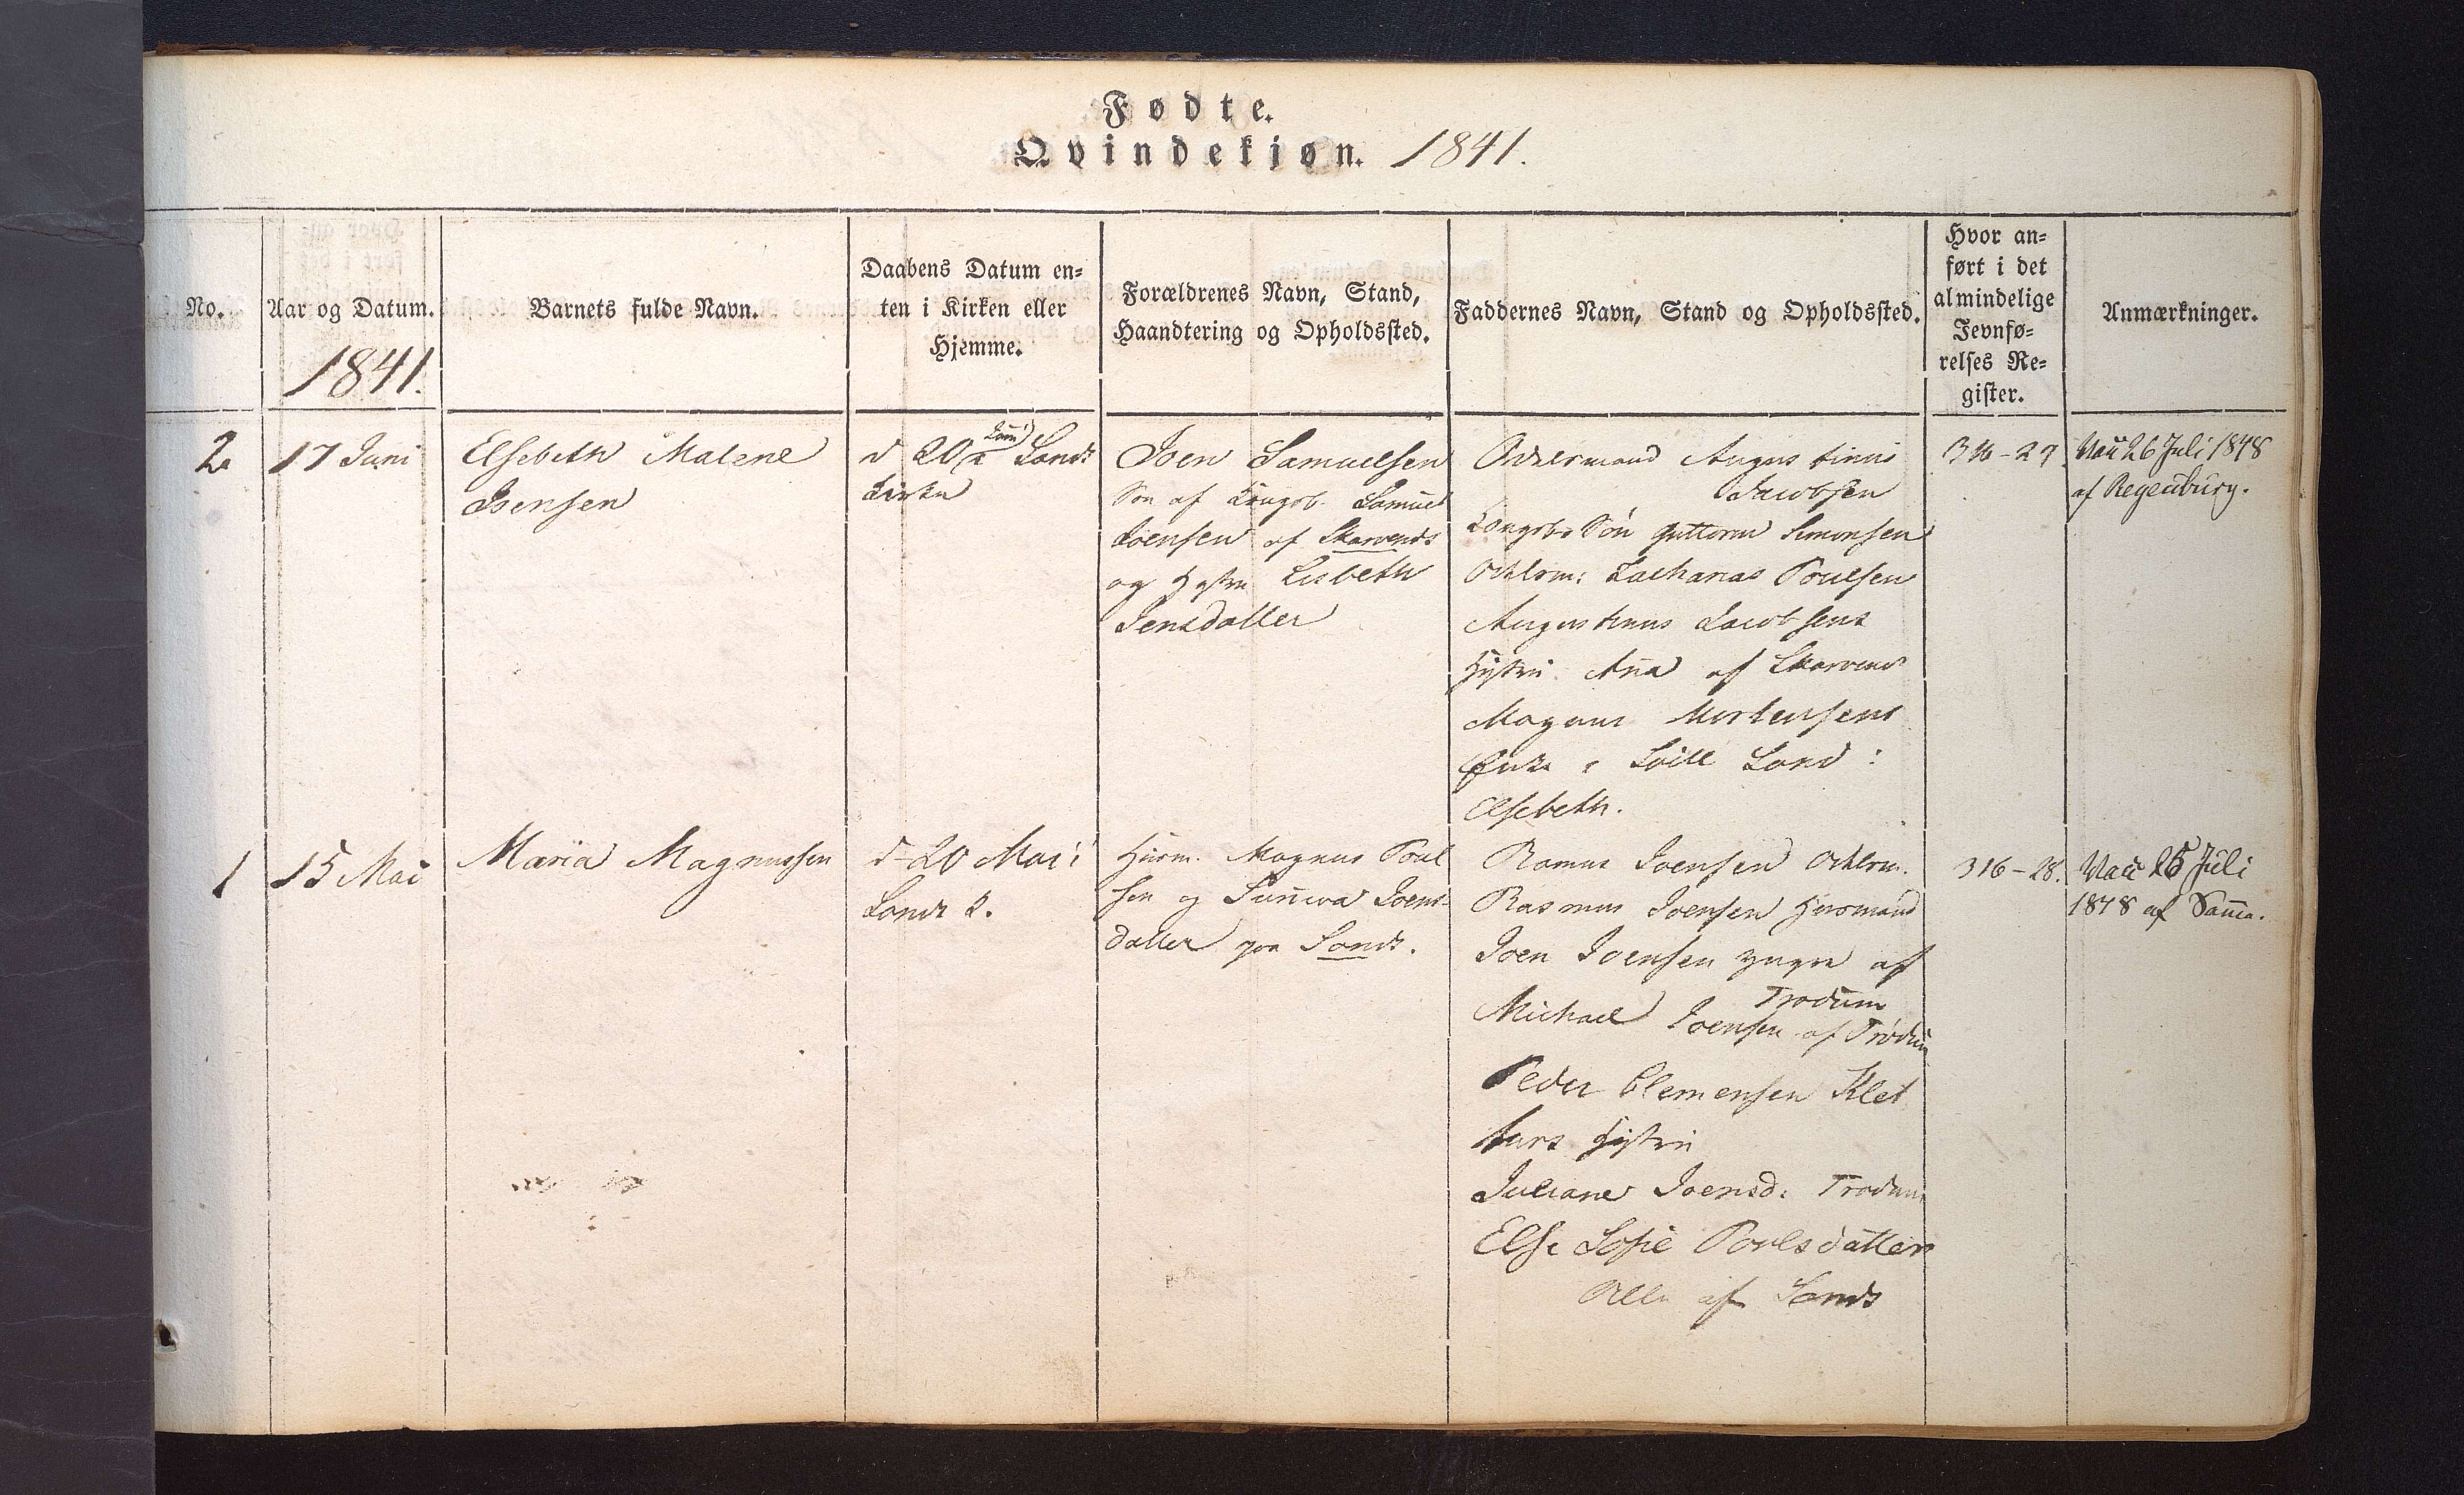 Fødte.
Qvindekjøn. 1841.
No.
Aar og Datum.
1841.
Barnets fulde Navn.
Daabens Datum en-
ten i Kirken eller
Hjemme.
Forældrenes Navn, Stand,
Haandtering og Opholdssted.
Faddernes Navn, Stand og Opholdssted.
Hvor an-
ført i det
almindelige
Jevnfø-
relses Re-
gister.
Anmærkninger.
2
17 Juni
Elsebeth Malene
Joensen
d 20 Juni Sands
Kirke
Joen Samuelsen
Søn af Kongsb. Samuel
Joensen af Skarvenes
og Hustru Lisbeth
Jensdatter
Odelsmand Augustinus
Jacobsen
Kongsb. Søn Guttorm Simonsen
Odelsm: Zacharias Poulsen
Augustinus Jacobsens
Hustru Anna af Skarvenes
Magnus Mortensens
Enke Sand:
Elsebeth.
316-29
Vacc 26 Juli 1848
af Regenburg.
1
15 Mai
Maria Magnussen
d 20 Mai i
Sands K.
Husm. Magnus Poul
sen og Sunneva Joens-
datter paa Sands.
Joensen Odelsm.
Rasmus Joensen Husmand
Joen Joensen yngre af
Trødum
Michael Joensen af Trødum
Peder Clemensen Klet
Hustru
Juliane Joensd: Trødum
Else Sofie Poulsdatter
Alle af Sands
316-28.
Vacc 25 Juli
1848 af Samme.